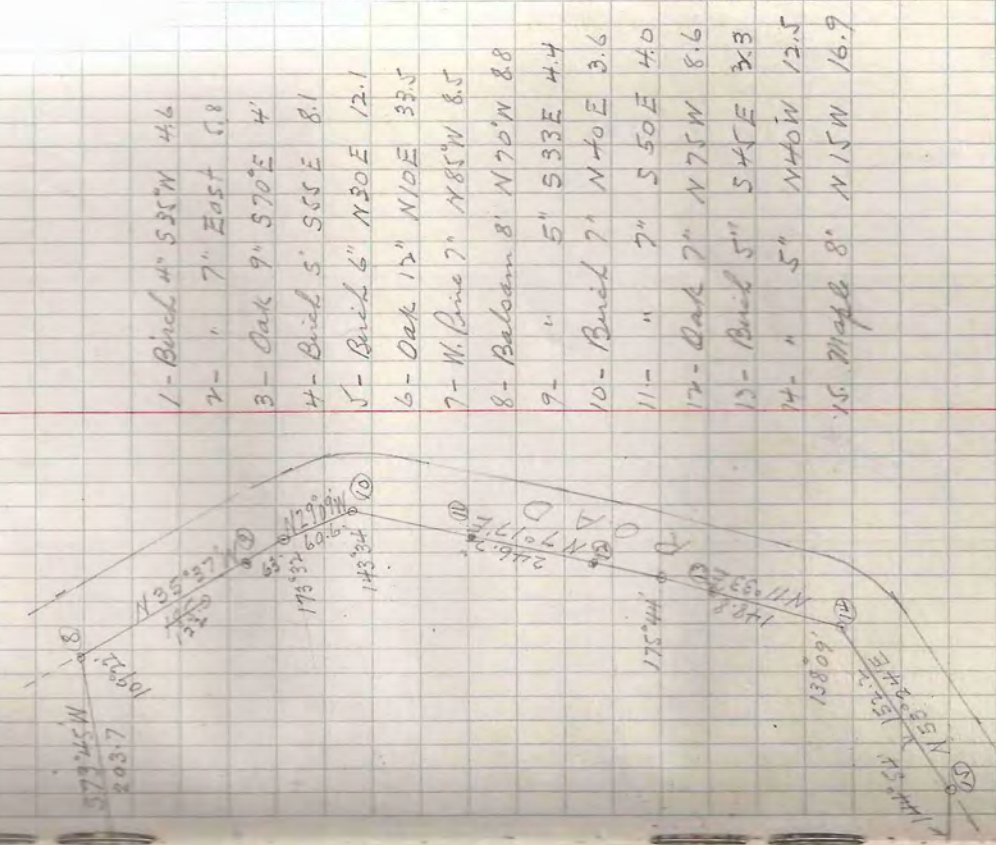 1- Birch 4" S35°W 4.6
2- " 7" East 5.8
3- Oak 9" S70°E 4'
4- Birch 5' S55E 8.1
5- Birch 6" N30E 12.1
6- Oak 12" N10E 33.5
7- W. Pine 7" N85°W 8.5
8- Balsam 8' N70°W 8.8
9- " 5" S33E 4.4
10- Birch 7" N40E 3.6
11- " 7" S50E 4.0
12- Oak 7" N75W 8.6
13- Birch 5" S45E 3.3
14- " 5" N40W 12.5
15. Maple 8" N15W 16.9
S79°45'W
203.7
8
109°22'
N35°37'
122.
9
63.
173°32'
N29°09'W
60.9
10
143°34'
11
246.2
N7°17'E
12
ROAD
175°44'
13
N11°33'E
148.8
138°09'
14
N53°24'E
152.2
15
144°54'